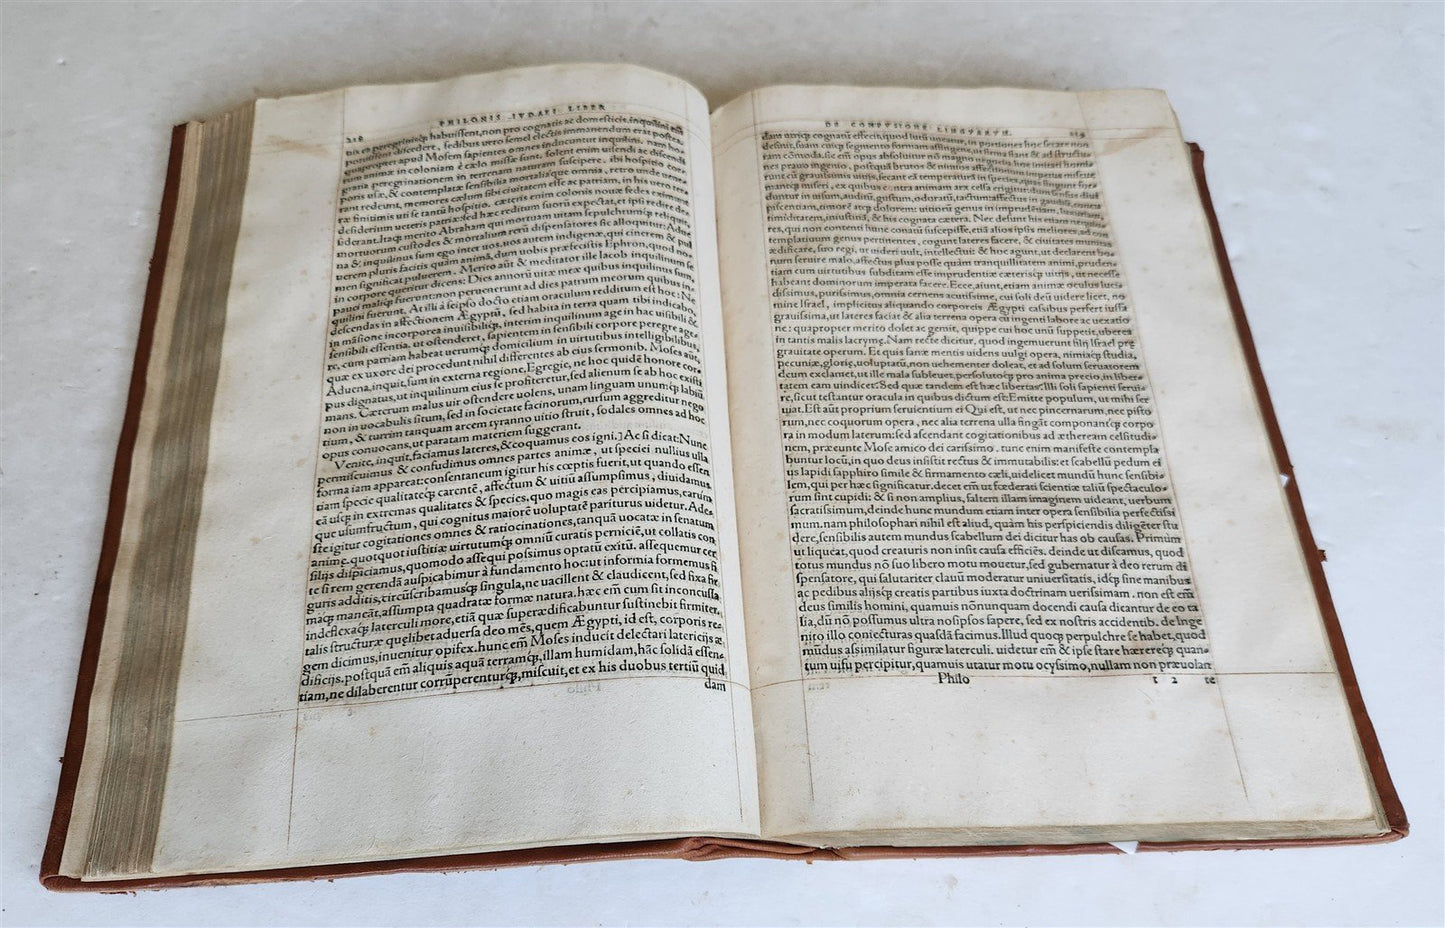 PHILONIS IVDAEI LIBER
216
bis ex peregrinisq; habuissent, non pro cognatis ac domesticis. inquilini em̃
potuissent discedere, sedibus uero semel electis immanendum erat postea.
quapropter apud Mosem sapientes omnes inducuntur inquilini. nam ho-
rum animæ in coloniam è cælo missæ sunt. solent enim uisendi ac discendi
gratia peregrinationem in terrenam naturam suscipere. ibi hospitio cor-
poris usæ, & contemplatæ sensibilia mortaliaq́ue omnia, retro unde uene-
rant redeunt, memores cælum sibi ciuitatem esse ac patriam, in his uero ter-
ræ finitimis uti se tantũ hospitio. cæteris enim colonis nouæ sedes
desiderium ueteris patriæ: sed hæc reditum suorũ expectat, et ipsi redire de-
siderant. Itaq; merito Abraham qui mortuam uitam sepulchrumq; reliquit,
mortuorum custodes & mortalium rerũ dispensatores sic alloquitur: Adue
na & inquilinus sum ego inter uos. uos autem indigenæ, qui cinerem & pul
uerem pluris facitis quàm animã, dum uobis præfecistis Ephron, quod no-
men significat puluerem. Merito aũt & meditator ille Iacob inquilinum se
in corpore queritur dicens: Dies annorũ uitæ meæ quibus inquilinus sum,
pauci maliq; fuerunt: non peruenerunt ad dies patrum meorum quibus in-
quilini fuerunt. At illi à seipso docto etiam oraculum redditum est hoc: Ne
descendas in affectionem Ægyptũ, sed habita in terra quam tibi indicabo,
in mãsione incorporea inuisibiliq;, interim inquilinum age in hac uisibili &
sensibili essentia. ut ostenderet, sapientem in sensibili corpore peregre age-
re, cum patriam habeat uerumq; domicilium in uirtutibus intelligibilibus,
quæ ex uxore dei procedunt nihil differentes ab eius sermonib. Moses aũt,
Aduena, inquit, sum in externa regione. Egregie, ne hoc quidẽ honore cor-
pus dignatus, ut inquilinum eius se profiteretur, sed alienum se ab hoc existi
mans. Cæterum malus uir ostendere uolens, unam linguam unumq; labiũ,
non in uocabulis situm, sed in societate facinorum, rursum aggreditur nego
tium, & turrim tanquam arcem tyranno uitio struit, sodales omnes ad hoc
opus conuocans, ut paratam materiem suggerant.
Venite, inquit, faciamus lateres, & coquamus eos igni.] Ac si dicat: Nunc
permiscuimus & confudimus omnes partes animæ, ut speciei nullius ulla
forma iam appareat: consentaneum igitur his cœptis fuerit, ut quando essen
tiam specie qualitateq; carentẽ, affectum & uitiũ assumpsimus, diuidamus
eã usq; in extremas qualitates & species, quo magis eas percipiamus, earum
que usumfructum, qui cognitus maiorẽ uoluptatẽ pariturus uidetur. Ade-
ste igitur cogitationes omnes & ratiocinationes, tanquã uocatæ in senatum
animæ. quotquot iustitiæ uirtutumq; omniũ curatis perniciẽ, ut collatis con-
silijs dispiciamus, quomodo assequi possimus optatũ exitũ. assequemur cer
te si rem gerendã auspicabimur à fundamento hoc: ut informia formemus fi
guris additis, circũscribamusq; singula, ne uacillent & claudicent, sed fixa fir
maq; maneãt, assumpta quadratæ formæ natura. hæc em̃ cum sit inconcussa
indeflexaq; laterculi more, etiã quæ superædificabuntur sustinebit firmiter.
talis structuræ quelibet aduersa deo mẽs, quem Ægypti, id est, corporis re-
gem dicimus, inuenitur opifex. hunc em̃ Moses inducit delectari latericijs æ
dificijs. postq̃ em̃ aliquis aquã terramq;, illam humidam, hãc solidã essen-
tiam, ne dilaberentur corrũperenturq́;, miscuit, et ex his duobus tertiũ quid
dam
DE CONFVSIONE LINGVARVM. 219
dam utriq; cognatũ effecit, quod lutũ uocatur, in portiones hoc secare non
desinit, suam cuiq; segmento formam affingens, ut firma fiant & ad structu-
ram cõmoda. sic em̃ opus absolutur nõ magno negotio. hoc imitari homi-
nes prauo ingenio, postquã brutos & nimios affectionum impetus miscue
runt cũ grauissimis uitijs, secant eã temperaturã in species, quas fingunt sue-
matice miseri, ex quibus contra animam arx celsa erigitur:
duntur in uisum, auditũ, gustum, odoratũ, tactum: affectus in gaudiũ, concu
piscentiam, timorẽ atq; dolorem: uitiorũ genus in imprudentiam, luxuriam,
timiditatem, iniustitiã, & his cognata cæterã. Nec desunt his etiam
res, qui non contenti hunc conatũ suscepisse, etiã alios ipsis meliores, ad con
templatiuum genus pertinentes, cogunt lateres facere, & ciuitates munitas
ædificare, suo regi, ut uideri uult, intellectui: & hoc agunt, ut declarent bo-
num seruire malo, affectus plus posse quàm tranquillitatem animi, pruden-
tiam cum uirtutibus subditam esse imprudentiæ cæterisq; uitijs, ut necesse
habeant dominorum imperata facere. Ecce, aiunt, etiam animæ oculus luci-
dissimus, purissimus, omnia cernens acutissime, cui soli deũ uidere licet, no-
mine Israel, implicitus aliquando corporeis Ægypti cassibus perfert iussa
grauissima, ut lateres faciat & alia terrena opera cũ ingenti labore ac uexatio
ne: quapropter merito dolet ac gemit, quippe cui hoc unũ suppetit, uberes
in tantis malis lacrymę. Nam recte dicitur, quod ingemuerunt filij Israel prę
grauitate operum. Et quis sanæ mentis uidens uulgi opera, nimiaq́; studia,
pecuniæ, glorię, uoluptatũ, non uehementer doleat, et ad solum seruatorem
deum exclamet, ut ille mala subleuet, persolutoq; pro anima precio, in liber-
tatem eam uindicet? Sed quæ tandem est hæc libertas? Illi soli sapienti serui-
re, sicut testantur oracula in quibus dictum est: Emitte populum, ut mihi ser
uiat. Est aũt proprium seruientium ei Qui est, ut nec pincernarum, nec pisto
rum, nec coquorum opera, nec alia terrena ulla fingãt componantq; corpo
ra in modum laterum: sed ascendant cogitationibus ad ætheream celsitudi-
nem, præeunte Mose amico dei carissimo. tunc enim manifeste contempla
buntur locũ, in quo deus insistit rectus & immutabilis: et scabellũ pedum ei
us lapidi sapphiro simile & firmamento cæli, uidelicet mundũ hunc sensibi-
lem, qui per hæc significatur. decet em̃ ut fœderati scientiæ taliũ spectaculo-
rum sint cupidi: & si non amplius, saltem illam imaginem uideant, uerbum
sacratissimum, deinde hunc mundum etiam inter opera sensibilia perfectissi
mum. nam philosophari nihil est aliud, quàm his perspiciendis diligẽter stu
dere, sensibilis autem mundus scabellum dei dicitur has ob causas. Primùm
ut liqueat, quod creaturis non insit causa efficiẽs. deinde ut discamus, quod
totus mundus nõ suo libero motu mouetur, sed gubernatur à deo rerum di
spensatore, qui salutariter clauũ moderatur uniuersitatis, idq; sine manibus
ac pedibus alijsq; creatis partibus iuxta doctrinam uerissimam. non est em̃
deus similis homini, quamuis nõnunquam docendi causa dicantur de eo ta
lia, dũ nõ possumus ultra nosipsos sapere, sed ex nostris accidentib. de Inge
nito illo coniecturas quasdã facimus. Illud quoq; perpulchre se habet, quod
mũdus assimilatur figuræ laterculi. uidetur em̃ & ipse stare hæreręq; quan-
tum uisu percipitur, quamuis utatur motu ocyssimo, nullam non præuolan
Philo t 2 te